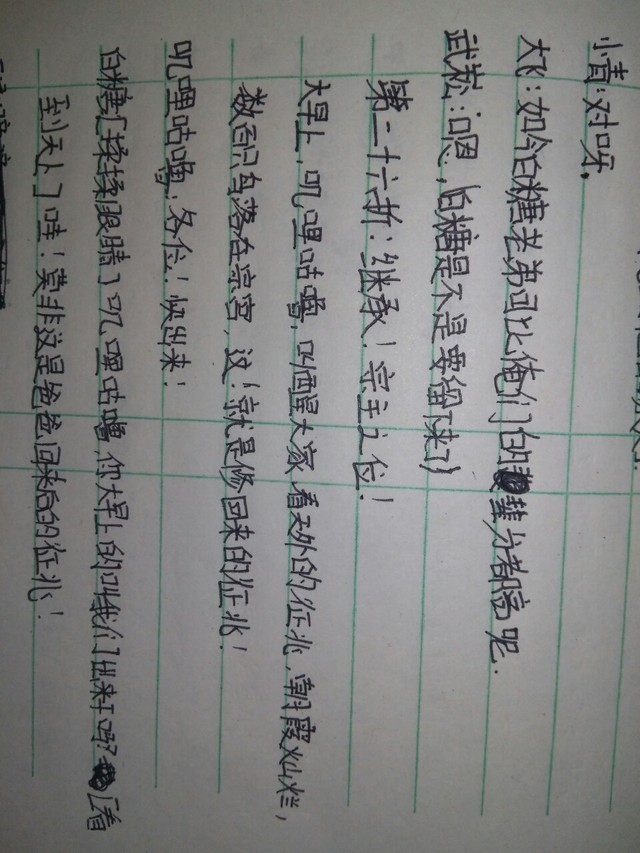 小青:对呀。
大飞:如今白糖老弟可比俺们的辈分都高呢.
武崧:嗯,白糖是不是要留下来了)
第二十六折:继承!宗主之位!
大早上,叽哩咕噜,叫醒大家,看天外的征兆,朝霞灿烂,
数百只鸟落在宗宫,这!就是修回来的征兆!
叽哩咕噜:各位!快出来!
白糖:[揉揉眼睛了]叽哩咕噜,你大早上的叫我们出来干吗?[看
到天上了]哇!莫非这是爸爸回来后的征兆!